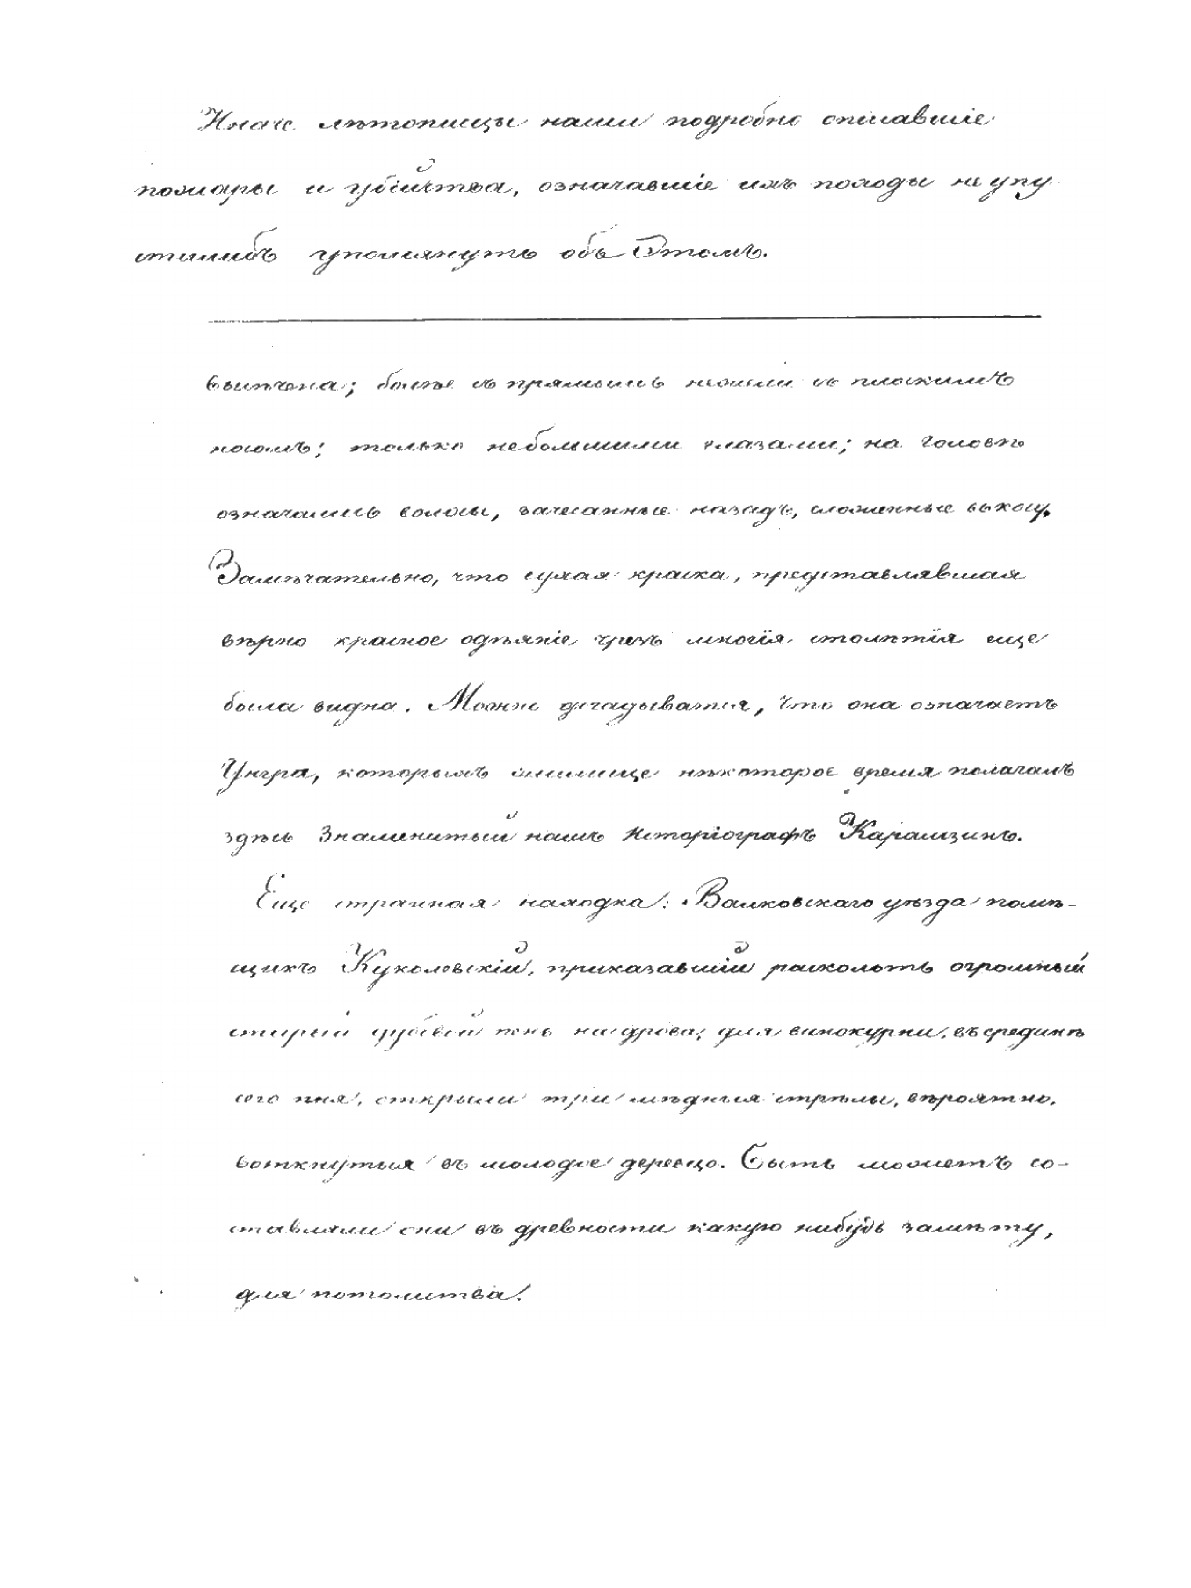 Иначе лѣтописцы наши подробно описавшіе
пожары и убійства, означавшіе ихъ походы не упу
стилибъ упомянуть объ Этомъ.
более съ прямымъ нежели съ плоскимъ
носомъ; только небольшими глазами; на головѣ
означались волосы, зачесанные назадъ, сложенные въ косу.
Замѣчательно, что сухая краска, представлявшая
вѣрно красное одѣяніе чрезъ многія столѣтія еще
была видна. Можно догадыватся, что она означаетъ
Унгра, которымъ жилище нѣкоторое время полагалъ
здѣсь Знаменитый нашъ Исторіографъ Карамзинъ.
Еще странная находка: Валковскаго уѣзда помѣ-
щикъ Куколовскій, приказавшій расколоть огромный
старый дубовой пень на дрова, для винокурни, въ срединѣ
сего пня, открыли три мѣдныя стрѣлы, вѣроятно,
воткнутыя въ молодое деревцо. Быть можетъ со-
ставляли они въ древности какую нибудь замѣту,
для потомства.